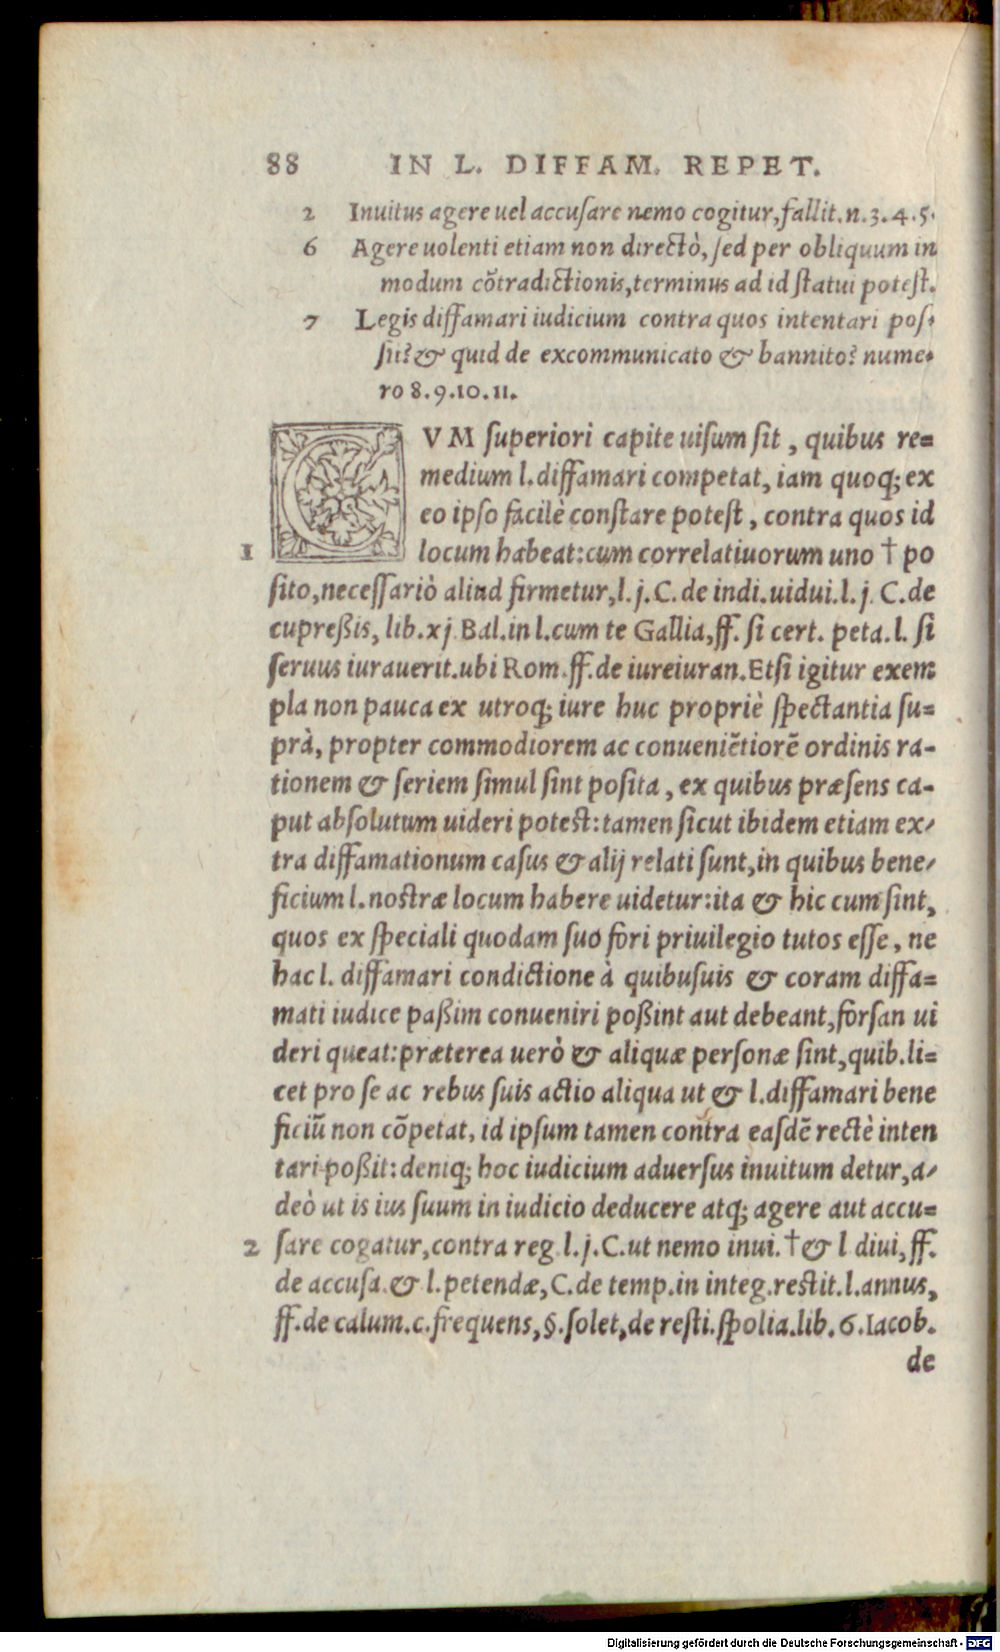 88 IN L. DIFFAM. REPET.
2 Inuitus agere uel accuſare nemo cogitur, fallit. n. 3. 4. 5.
6 Agere uolenti etiam non directò, ſed per obliquum in
modum cõtradictionis, terminus ad id ſtatui poteſt.
7 Legis diffamari iudicium contra quos intentari poſ-
ſit? & quid de excommunicato & bannito? nume-
ro 8. 9. 10. 11.
CVM ſuperiori capite uiſum ſit, quibus re=
medium l. diffamari competat, iam quoq; ex
eo ipſo facilè conſtare poteſt, contra quos id
1 locum habeat: cum correlatiuorum uno † po
ſito, neceſſariò aliud firmetur, l. j. C. de indi. uidui. l. j. C. de
cupreßis, lib. xj. Bal. in l. cum te Gallia, ff. ſi cert. peta. l. ſi
ſeruus iurauerit. ubi Rom. ff. de iureiuran. Etſi igitur exem
pla non pauca ex utroq; iure huc propriè ſpectantia ſu=
prà, propter commodiorem ac conueniẽtiorẽ ordinis ra-
tionem & ſeriem ſimul ſint poſita, ex quibus præſens ca-
put abſolutum uideri poteſt: tamen ſicut ibidem etiam ex-
tra diffamationum caſus & alij relati ſunt, in quibus bene-
ficium l. noſtræ locum habere uidetur: ita & hic cum ſint,
quos ex ſpeciali quodam ſuo fori priuilegio tutos eſſe, ne
hac l. diffamari condictione à quibuſuis & coram diffa=
mati iudice paßim conueniri poßint aut debeant, forſan ui
deri queat: præterea uerò & aliquæ perſonæ ſint, quib. li=
cet pro ſe ac rebus ſuis actio aliqua ut & l. diffamari bene
ficiũ non cõpetat, id ipſum tamen contra eaſdẽ rectè inten
tari poßit: deniq; hoc iudicium aduerſus inuitum detur, a-
deò ut is ius ſuum in iudicio deducere atq; agere aut accu=
2 ſare cogatur, contra reg. l. j. C. ut nemo inui. † & l. diui, ff.
de accuſa. & l. petendæ, C. de temp. in integ. reſtit. l. annus,
ff. de calum. c. frequens, §. ſolet, de reſti. ſpolia. lib. 6. Iacob.
de
Digitalisierung gefördert durch die Deutsche Forschungsgemeinschaft - DFG